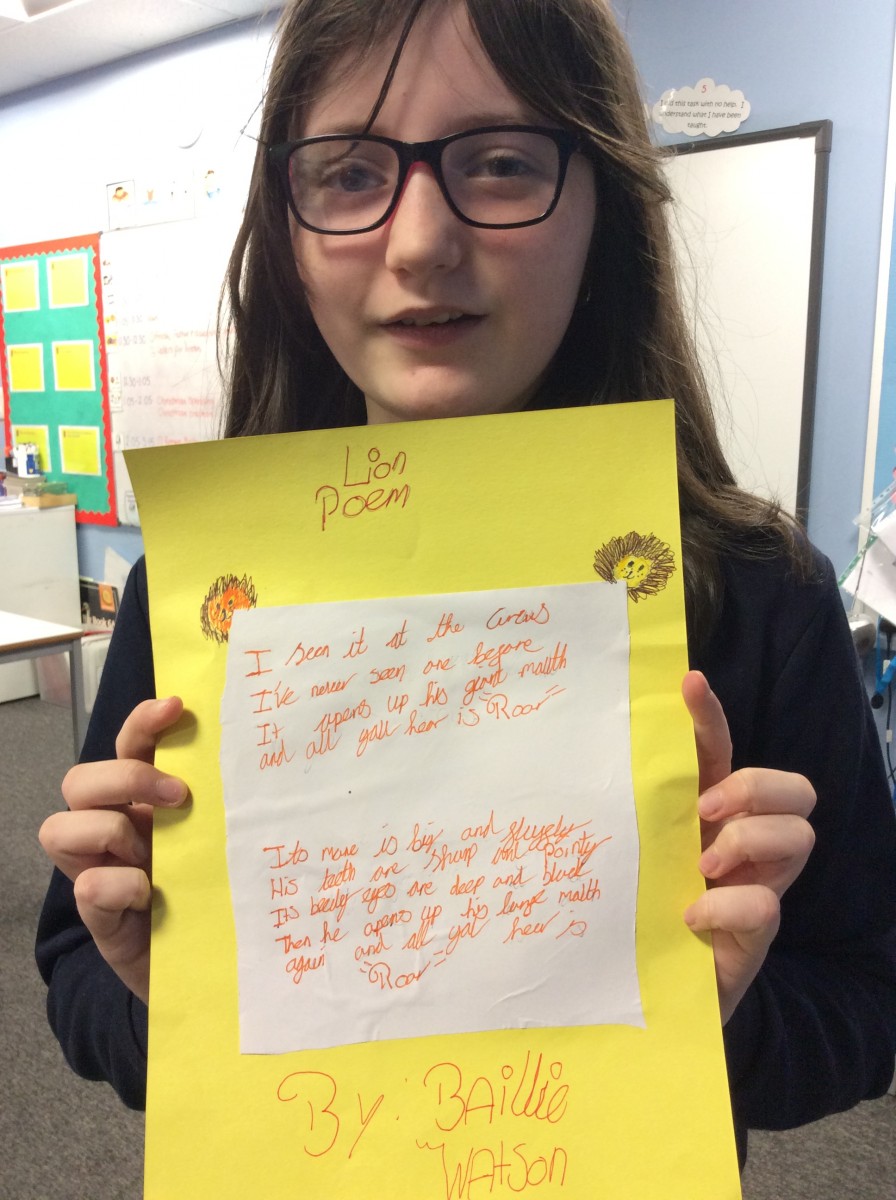 5
I did this task with no help. I
understand what I have been
taught.
Lion
Poem
I seen it at the Circus
I've never seen one before
It opens up his giant mouth
and all you hear is "Roar"
Its mane is big and
His teeth are sharp and pointy
Its beedy eyes are deep and black
Then he opens up his large mouth
again and all you hear is
"Roar"
By: Baillie
Watson